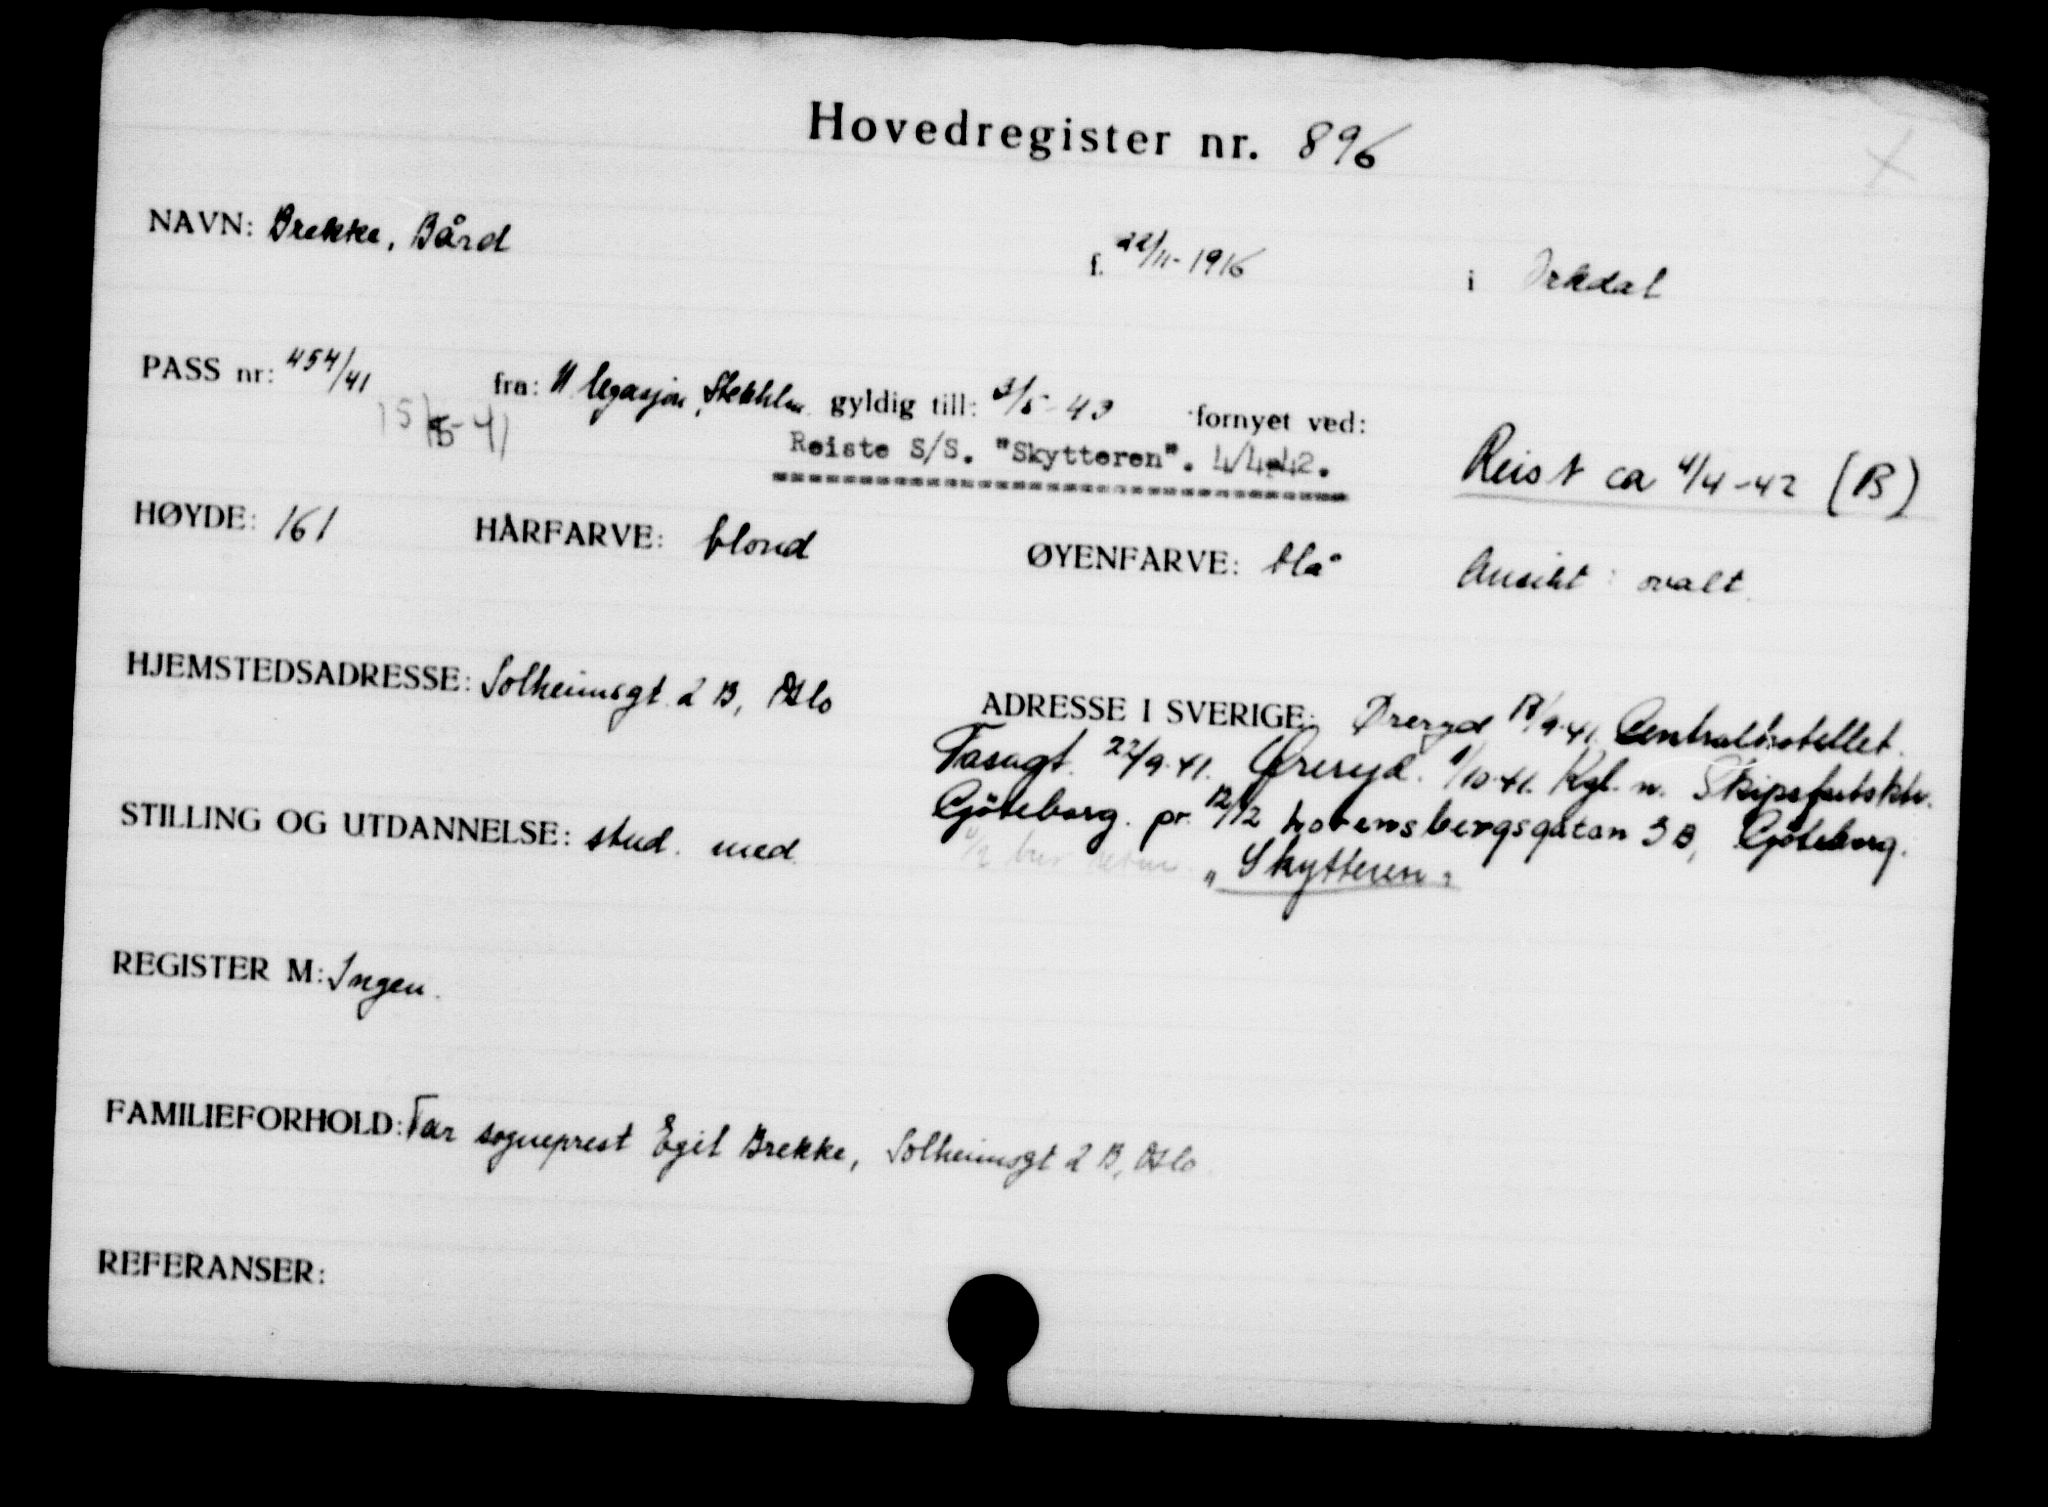 Hovedregister nr. 896
NAVN: Brekke, Bård f. 22/11-1916 i Orkdal
PASS nr: 454/41 fra: N legasjon, Stockholm gyldig till: 3/5-43 fornyet ved:
15/5-41
Reiste S/S. "Skytteren". 4/4-42. Reist ca 4/4-42 (B)
HØYDE: 161 HÅRFARVE: blond ØYENFARVE: blå Ansikt: ovalt.
HJEMSTEDSADRESSE: Solheimsgt. 2 B, Oslo ADRESSE I SVERIGE: Øreryd 18/9.41. Centralhotellet.
Vasagt. 22/9.41. Øreryd. 1/10.41. Kgl. n. Skipsfartsktr.
Göteborg. pr. 12/12 Lorensbergsgatan 3 B, Göteborg.
STILLING OG UTDANNELSE: stud. med.
"Skytteren"
REGISTER M: Ingen.
FAMILIEFORHOLD: Far sogneprest Egil Brekke, Solheimsgt 2 B, Oslo
REFERANSER: